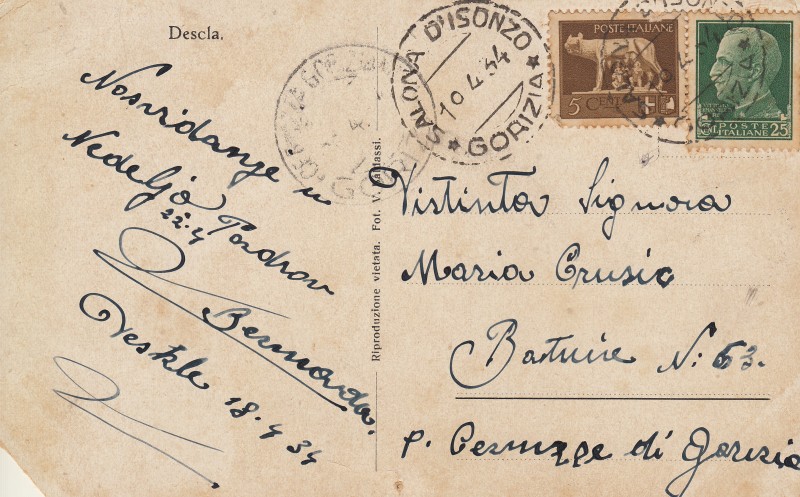 Descla.
Nasvidanje u
Nedeljo Pozdrov
22.4
Bernarda.
Deskle 18.4 34
Riproduzione vietata. Fot. V.
SALONA D'ISONZO
10.4.34
★ GORIZIA ★
POSTE ITALIANE
5 CENT
POSTE
ITALIANE 25
Distinta Signora
Maria Crusic
N: 63.
p. di Gorizia